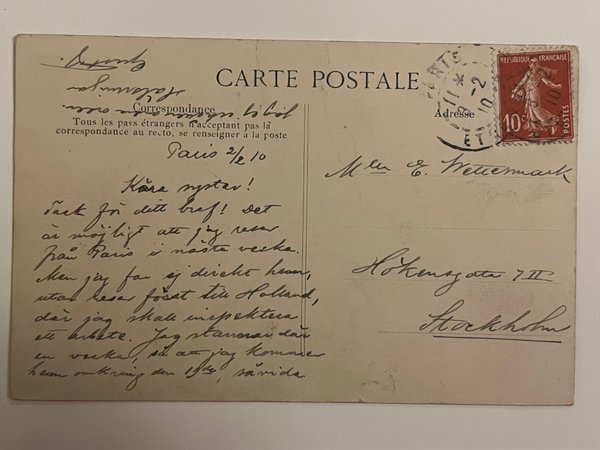 CARTE POSTALE
Correspondance
Adresse
Tous les pays étrangers n'acceptant pas la
correspondance au recto, se renseigner à la poste
Paris 2/2 10
Kära syster!
Tack för ditt bref! Det
är möjligt att jag reser
från Paris i nästa vecka.
Men jag far ej direkt hem,
utan reser först till Holland,
där jag skall inspektera
ett arbete. Jag stannar där
en vecka, så att jag kommer
hem omkring den 15de, såvida
jag ej
Hälsningar
Mlle E. Wettermark
Högbergsgatan 7 II
Stockholm
RÉPUBLIQUE FRANÇAISE
10c
POSTES
PARIS